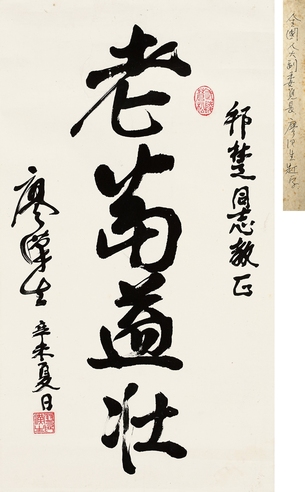 邦楚同志教正
老當益壮
廖漢生
辛未夏日
全国人大副委员长廖汉生题字